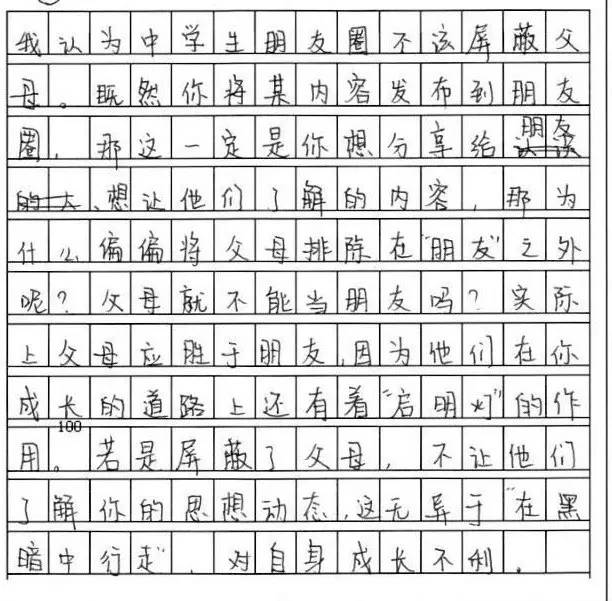 我认为中学生朋友圈不该屏蔽父
母。既然你将某内容发布到朋友
圈，那这一定是你想分享给朋友
、想让他们了解的内容，那为
什么偏偏将父母排除在“朋友”之外
呢？父母就不能当朋友吗？实际
上父母应胜于朋友，因为他们在你
成长的道路上还有着“启明灯”的作
100
用。若是屏蔽了父母，不让他们
了解你的思想动态，这无异于“在黑
暗中行走”，对自身成长不利。